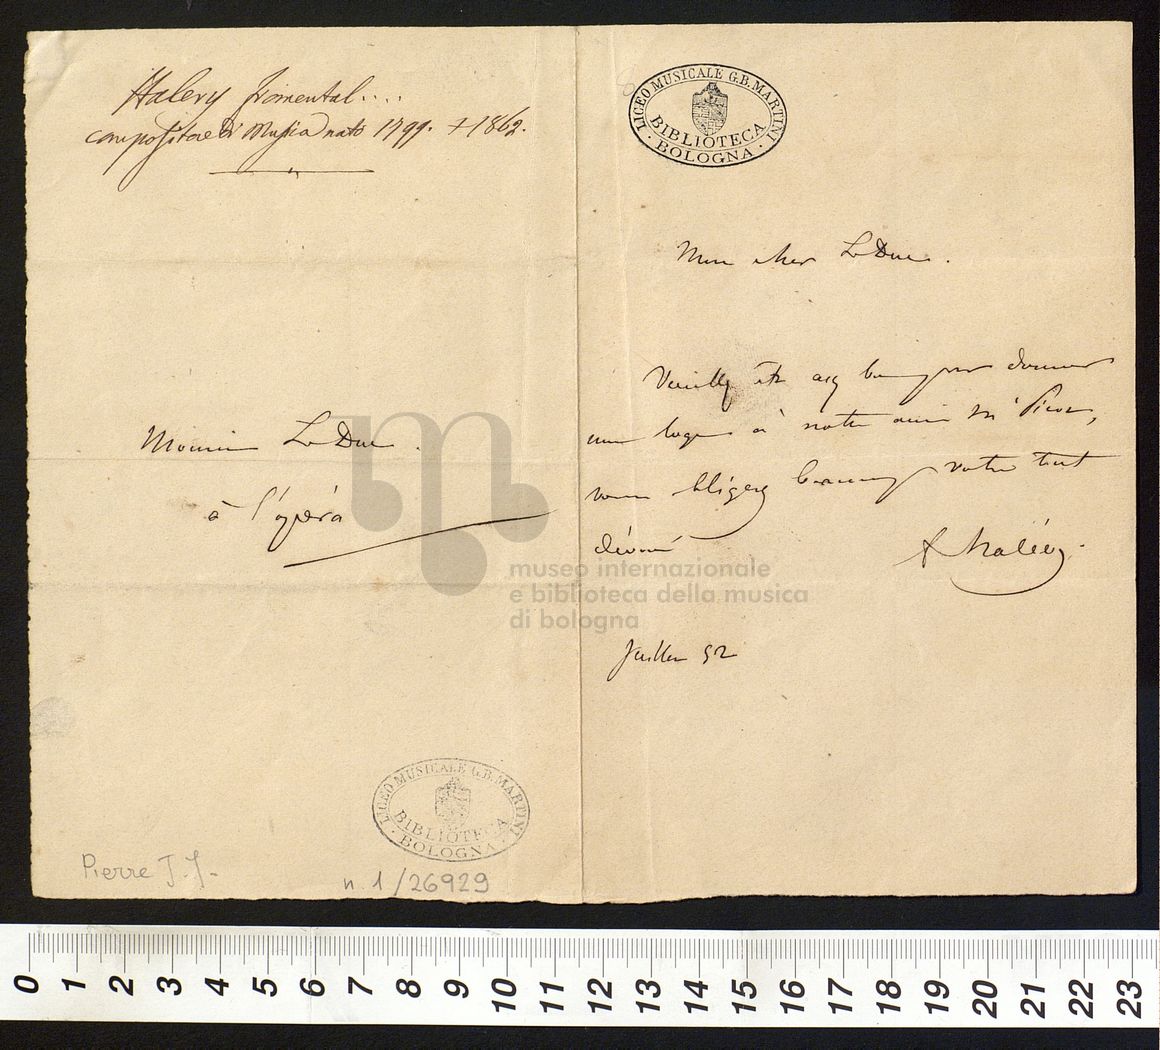 Halevy Fromental....
compositore di Musica nato 1799. +1862.
Monsieur LeDuc.
à l'opéra
LICEO MUSICALE G.B. MARTINI
BIBLIOTECA
BOLOGNA
Pierre J. J.
n. 1/26929
LICEO MUSICALE G.B. MARTINI
BIBLIOTECA
· BOLOGNA ·
Mon cher LeDuc.
Veuillez être assez bon pour donner
une loge à notre ami Mr
vous obligerez beaucoup votre tout
dévoué
F Halévy.
Juillet 52
museo internazionale
e biblioteca della musica
di bologna
0 1 2 3 4 5 6 7 8 9 10 11 12 13 14 15 16 17 18 19 20 21 22 23